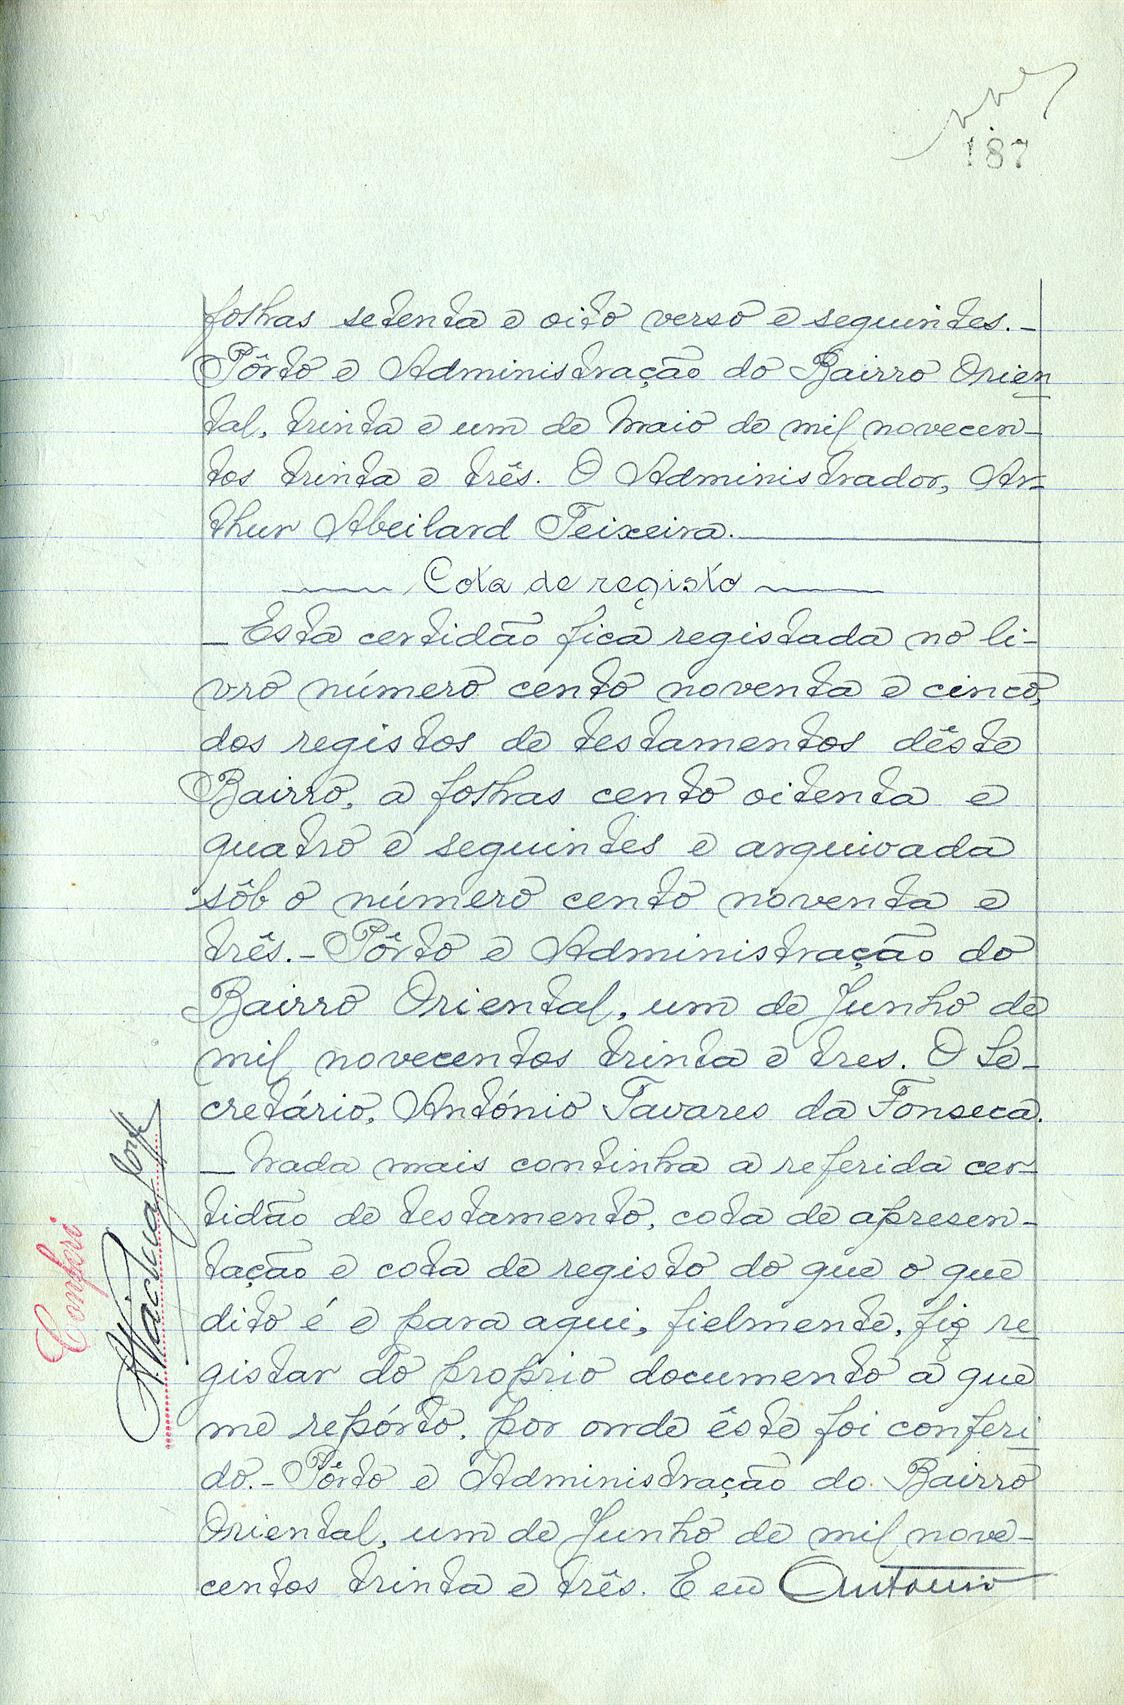 187
folhas setenta e oito verso e seguintes.-
Pôrto e Administração do Bairro Orien
tal, trinta e um de Maio de mil novecen-
tos trinta e três. O Administrador, Ar-
thur Abeilard Teixeira.
Cota de registo
- Esta certidão fica registada no li-
vro número cento noventa e cinco,
dos registos de testamentos dêste
Bairro, a folhas cento oitenta e
quatro e seguintes e arquivada
sôb o número cento noventa e
três.- Pôrto e Administração do
Bairro Oriental, um de Junho de
mil novecentos trinta e tres. O Se-
cretário, António Tavares da Fonseca.
- Nada mais continha a referida cer-
tidão de testamento, cota de apresen-
tação e cota de registo do que o que
dito é e para aqui, fielmente, fiz re
gistar do proprio documento a que
me repórto, por onde êste foi conferi
do.- Pôrto e Administração do Bairro
Oriental, um de Junho de mil nove-
centos trinta e três. E eu Antonio
Conferi